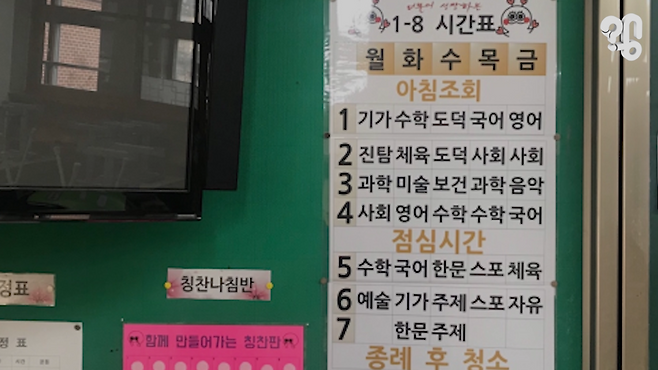 더불어 성장하는
1-8 시간표
월 화 수 목 금
아침조회
1 기가 수학 도덕 국어 영어
2 진탐 체육 도덕 사회 사회
3 과학 미술 보건 과학 음악
4 사회 영어 수학 수학 국어
점심시간
5 수학 국어 한문 스포 체육
6 예술 기가 주제 스포 자유
7 한문 주제
종례 후 청소
정표
칭찬나침반
정 표
함께 만들어가는 칭찬판